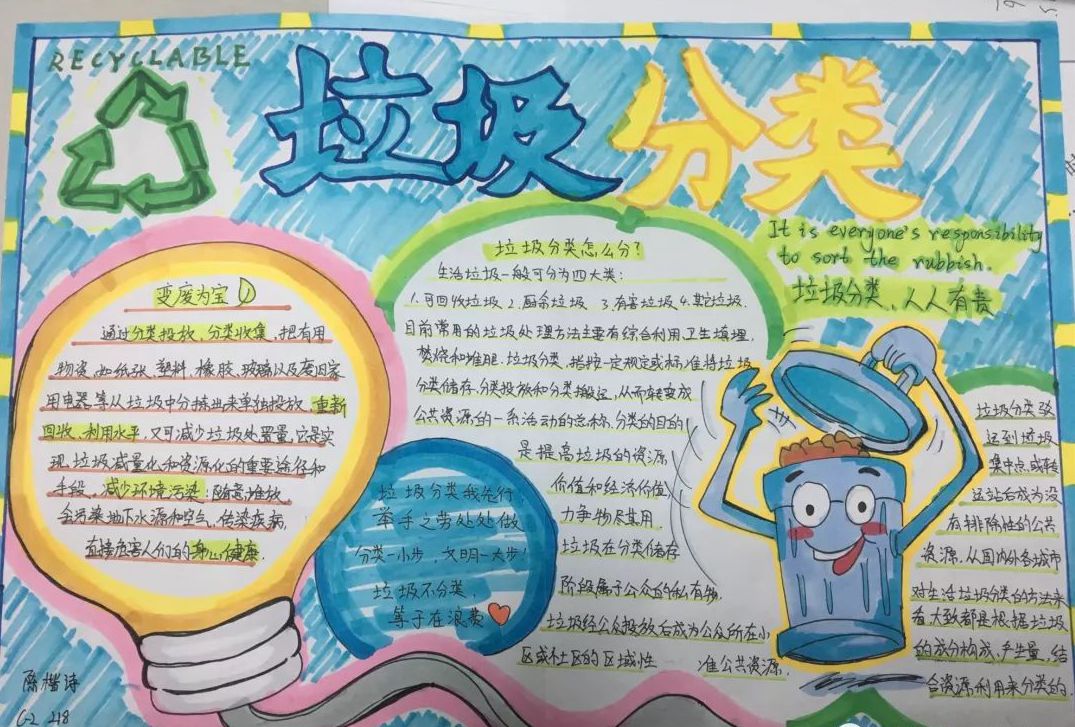 RECYCLABLE
垃圾分类
It is everyone's responsibility
to sort the rubbish.
垃圾分类、人人有责
变废为宝
通过分类投放、分类收集,把有用
物资,如纸张、塑料、橡胶、玻璃以及废旧家
用电器等从垃圾中分拣出来单独投放,重新
回收、利用水平,又可减少垃圾处置量,它是实
现垃圾减量化和资源化的重要途径和
手段。减少环境污染:随意堆放,
会污染地下水源和空气,传染疾病,
直接危害人们的身心健康.
垃圾分类怎么分?
生活垃圾一般可分为四大类:
1.可回收垃圾 2.厨余垃圾 3.有害垃圾 4.其它垃圾.
目前常用的垃圾处理方法主要有综合利用、卫生填埋,
焚烧和堆肥.垃圾分类,指按一定规定或标准将垃圾
分类储存、分类投放和分类搬运,从而转变成
公共资源的一系活动的总称.分类的目的
是提高垃圾的资源
价值和经济价值,
力争物尽其用.
垃圾在分类储存
阶段属于公众的私有物.
垃圾经公众投放后成为公众所在小
区或社区的区域性 准公共资源,
垃圾分类我先行,
举手之劳处处做
分类一小步,文明一大步!
垃圾不分类,
等于在浪费
垃圾分类
运到垃圾
集中点或转
运站后成为没
有排除性的公共
资源.从国内外各城市
对生活垃圾分类的方法来
看,大致都是根据垃圾
的成分构成、产生量,结
合资源利用来分类的.
218